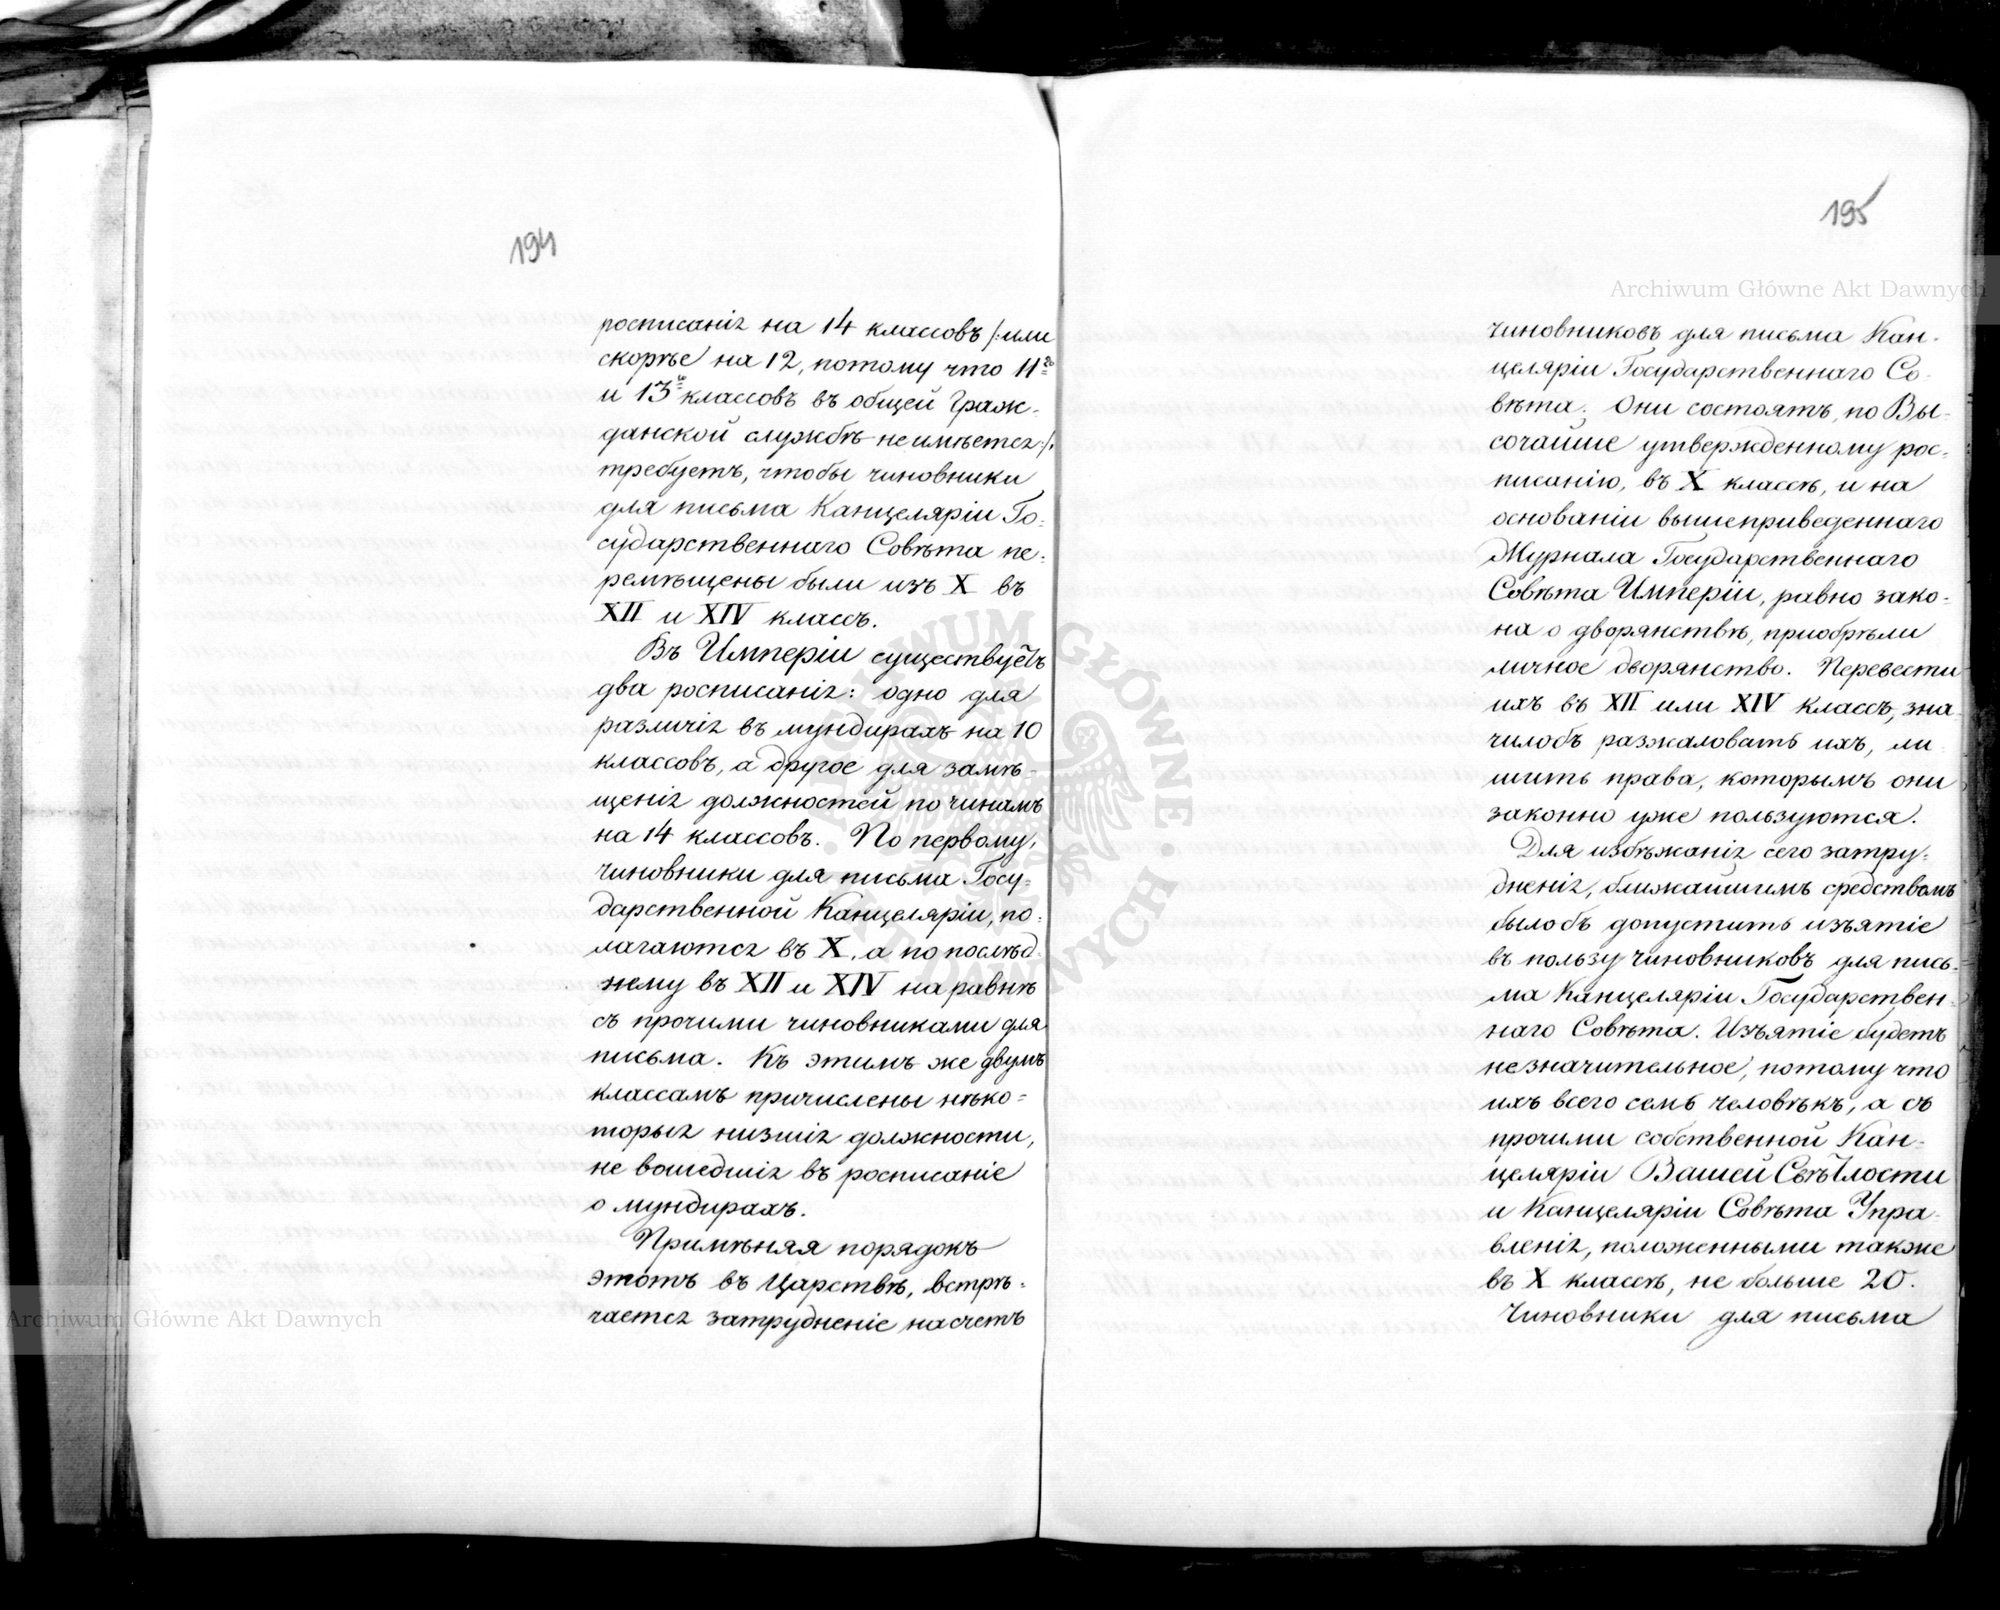 194
росписанія на 14 классовъ /:или
скорѣе на 12, потому что 11го
и 13го классовъ въ общей Граж-
данской службѣ неимѣется:/,
требуетъ, чтобы чиновники
для письма Канцеляріи Го-
сударственнаго Совѣта пе-
ремѣщены были изъ X въ
XII и XIV классъ.
Въ Имперіи существуетъ
два росписанія: одно для
различія въ мундирахъ на 10
классовъ, а другое для замѣ-
щенія должностей по чинамъ
на 14 классовъ. По первому,
чиновники для письма Госу-
дарственной Канцеляріи, по-
лагаются въ X, а по послѣд-
нему въ XII и XIV на равнѣ
съ прочими чиновниками для
письма. Къ этимъ же двумъ
классамъ причислены нѣко-
торыя низшія должности,
не вошедшія въ росписаніе
о мундирахъ.
Примѣняя порядокъ
этотъ въ Царствѣ, встрѣ-
чается затрудненіе насчетъ
195
чиновниковъ для письма Кан-
целяріи Государственнаго Со-
вѣта. Они состоятъ, по Вы-
сочайше утвержденному рос-
писанію, въ X классѣ, и на
основаніи вышеприведеннаго
Журнала Государственнаго
Совѣта Имперіи, равно зако-
на о дворянствѣ, пріобрѣли
личное дворянство. Перевести
ихъ въ XII или XIV классъ, зна-
чилобъ разжаловать ихъ, ли-
шить права, которымъ они
законно уже пользуются.
Для избѣжанія сего затру-
дненія, ближайшимъ средствомъ
былобъ допустить изъятіе
въ пользу чиновниковъ для пись-
ма Канцеляріи Государствен-
наго Совѣта. Изъятіе будетъ
незначительное, потому что
ихъ всего семь человѣкъ, а съ
прочими собственной Кан-
целяріи Вашей Свѣтлости
и Канцеляріи Совѣта Упра-
вленія, положенными также
въ X классѣ, не больше 20.
Чиновники для письма
Archiwum Główne Akt Dawnych
Archiwum Główne Akt Dawnych
ARCHIWUM GŁÓWNE AKT DAWNYCH